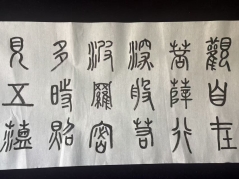 觀自在
菩薩行
深般若
波羅密
多時照
見五蘊